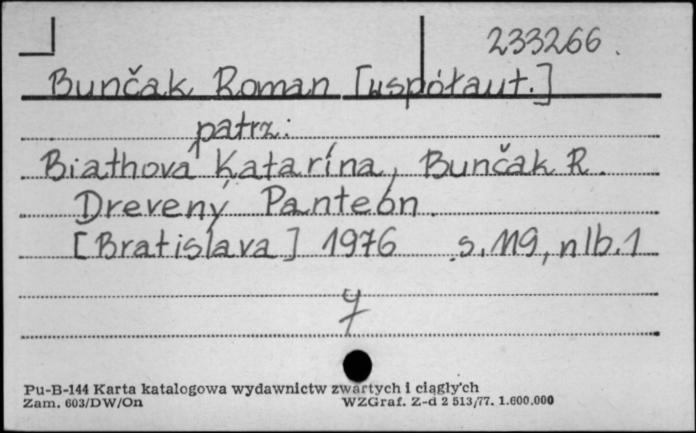 233266.
Bunčak Roman [współaut.]
patrz:
Biathová Katarína, Bunčak R.
Drevený Panteón.
[Bratislava] 1976 s. 119, nlb. 1
Pu-B-144 Karta katalogowa wydawnictw zwartych i ciągły'ch
Zam. 603/DW/On WZGraf. Z-d 2 513/77. 1.600.000